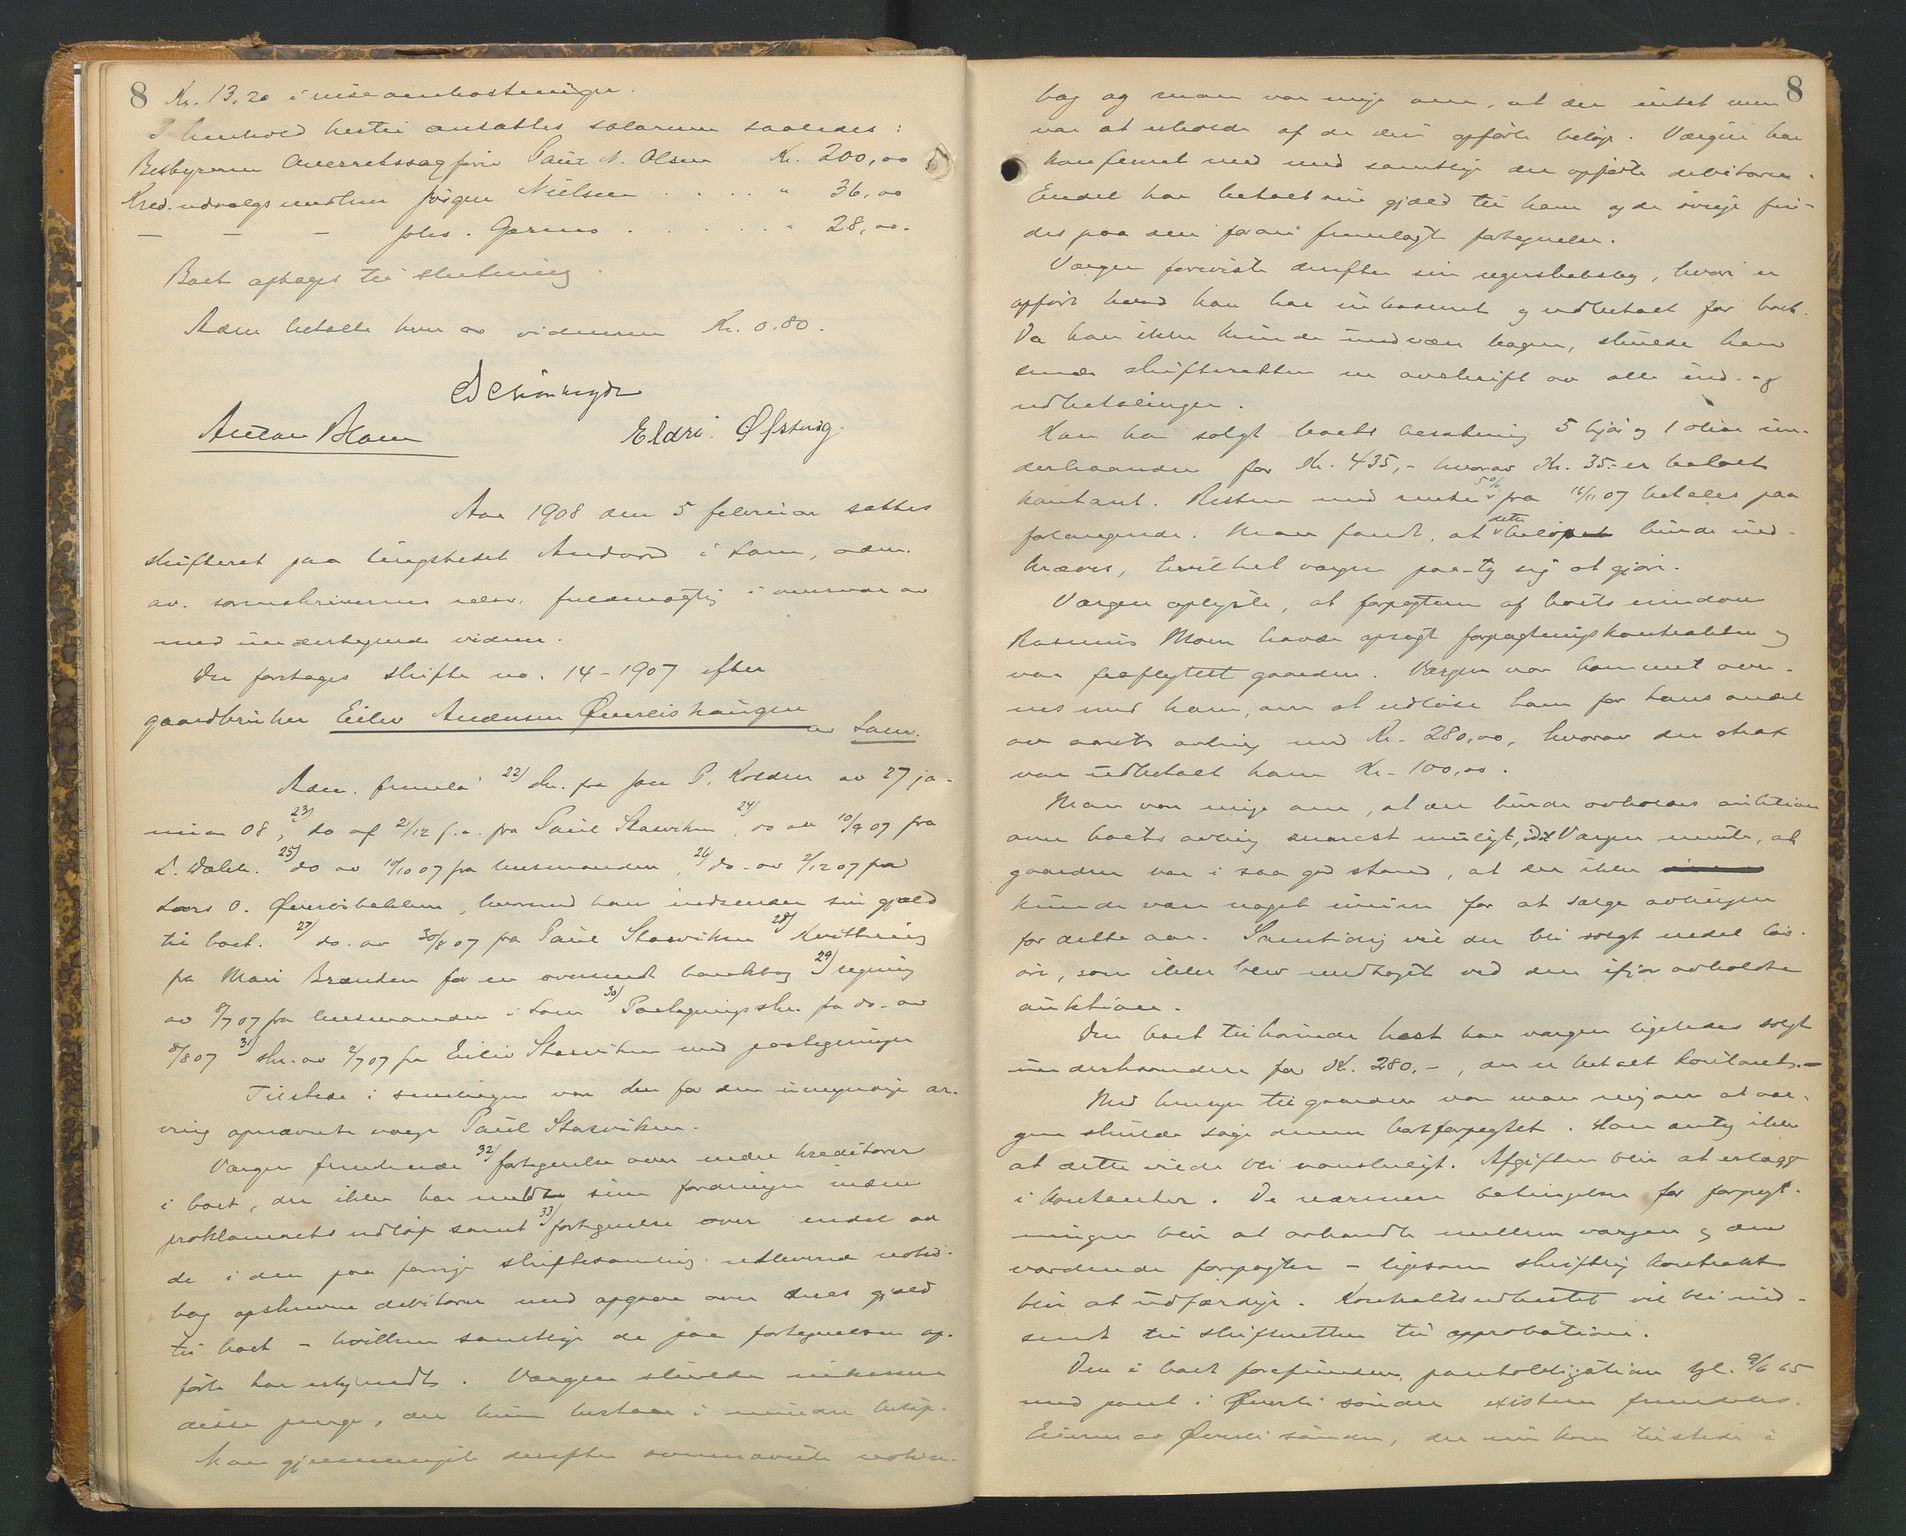 8
Kr. 13,20 i inseamkostninger.
I henhold hertil ansattes salærene saaledes:
Bestyreren Overretssagfører Paul N. Olsen Kr. 200,00
Kred. udvalgsmedlem Jørgen Nielsen . . . . " 36,00
— — — Johs. Garmo . . . . . . " 28,00.
Boet optages til slutning.
Adm. betalte hver av vidnerne Kr. 0.80.
Anton Blom Eldri Øfstnig.
Aar 1908 den 5 februar sattes
skifteret paa tingstedet Andvord i Lom, adm.
av sorenskriverens edsv. fuldmægtig i overvær av
med undertegnede vidner.
Der foretages skifte no. 14 - 1907 efter
gaardbruker Eilev Andersen Øverlishaugen
av Lom.
Adm. fremla 22) skr. fra Jon P. Kolden av 27 ja-
nuar 08, 23) do af 21/12 f.a. fra Paul Stasviken, 24) do av 10/9 07 fra
L. Dæhli. 25) do av 10/10 07 fra lensmanden, 26) do. av 2/12 07 fra
Lars O. Øverlibakken, hvormed han indsender sin gjæld
til boet. 27) do. av 30/8 07 fra Paul Stasviken 28) Kvittering
fra Mari Brænden for en oversendt bankbog 29) regning
av 8/7 07 fra lensmanden i Lom 30) Paategningsskr. fra do. av
8/8 07 31) skr. av 2/7 07 fra Eiliv Stasviken med paategninger
Tilstede i samlingen var den for den umyndige ar-
ving opnævnte verge Paul Stasviken.
Vergen fremlagde 32) fortegnelse over endel kreditorer
i boet, der ikke har meldt sine fordringer inden
proklamaets udløp samt 33) fortegnelse over endel av
de i den paa forrige skiftesamling utleverte notis-
bog opskrevne debitorer med opgave over deres gjæld
til boet - hvilken samtlige de paa fortegnelsen op-
førte har erkjendt. Vergen skulde inkassere
disse penge, der kun bestaar i mindre beløp.
Man gjennemgik derefter ovennævnte notis-
8
bog og man var enige om, at der intet mer
var at erholde af de deri opførte beløp. Vergen har
konfereret med med samtlige der opførte debitorer.
Endel har betalt sin gjæld til ham og de øvrige fin-
des paa den foran fremlagte fortegnelse.
Vergen foreviste derefter sin regnskabsbog, hvori er
opført hvad han har inkasseret og udbetalt for boet.
Da han ikke kunde undvære bogen, skulde han
sende skifteretten en avskrift av alle ind- og
udbetalinger.
Han har solgt boets besætning 5 kjør og 1 okse un-
derhaanden for Kr. 435,- hvorav Kr. 35.- er betalt
kontant. Resten med rente 5% fra 16/11 07 betales paa
forlangende. Man fandt, at dette beløp burde ind-
kræves, hvilket vergen paatog sig at gjøre.
Vergen oplyste, at forpagteren af boets eiendom
Rasmus Moen havde opsagt forpagtningskontrakten og
var fraflyttet gaarden. Vergen var kommet over-
ens med ham, om at udløse ham for hans andel
av aarets avling med Kr. 280,00, hvorav der straks
var udbetalt ham Kr. 100,00.
Man var enige om, at der burde avholdes auktion
over boets avling snarest muligt, idet Vergen mente, at
gaarden var i saa god stand, at der ikke
kunde være noget imot for at sælge avlingen
for dette aar. Samtidig vil der bli solgt endel løs-
øre, som ikke blev medtaget ved den ifjor avholdte
auktion.
Den boet tilhørende hest har vergen ligeledes solgt
underhaanden for Kr. 280.-, der er betalt kontant.-
Med hensyn til gaarden var man enig om at ver-
gen skulde søge denne bortforpagtet. Han antog ikke
at dette vilde bli vanskeligt. Afgiften blir at erlægge
i kontanter. De nærmere betingelser for forpagt-
ningen blir at avhandle mellem vergen og den
vordende forpagter - ligesom skriftlig kontrakt
blir at udfærdige. Kontraktsudkastet vil bli ind-
sendt til skifteretten til approbation.
Den i boet forefundne pantobligation tgl. 9/6 65
med pant i Øverli søndre existerer fremdeles.
Eieren av Øverli søndre, der nu kom tilstede i